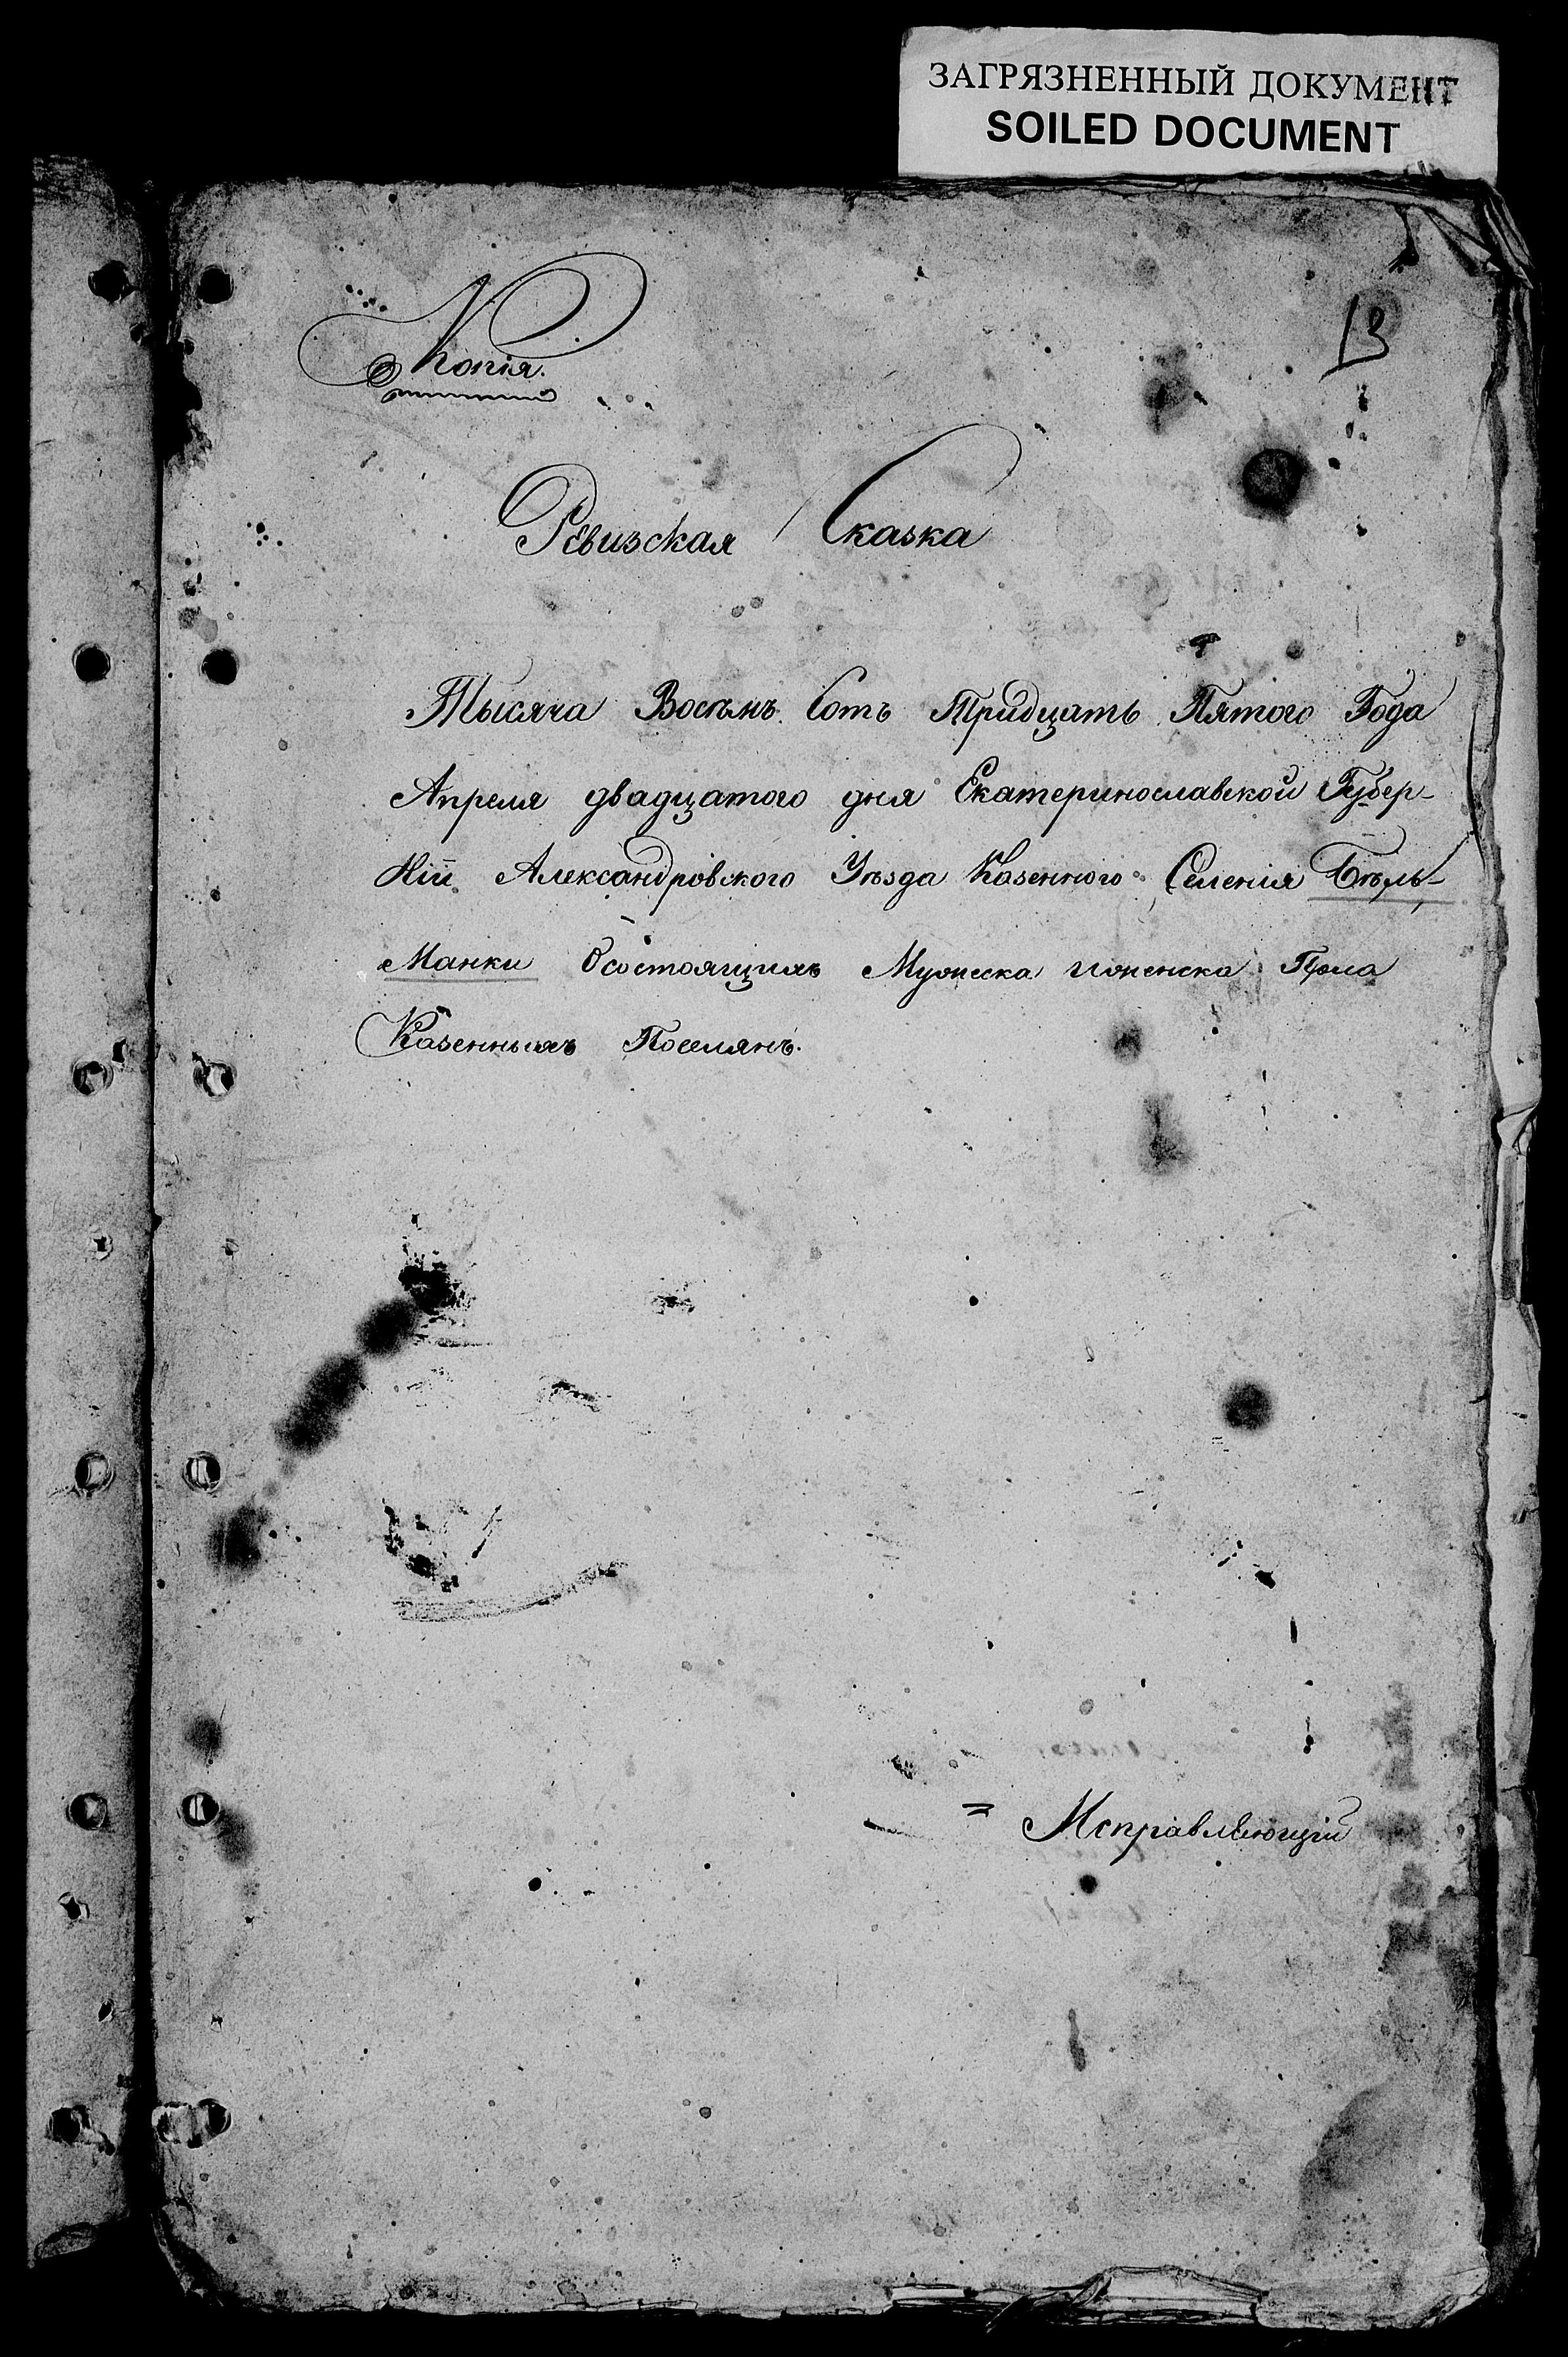 ЗАГРЯЗНЕННЫЙ ДОКУМЕНТ
SOILED DOCUMENT
13
Копія.
Ревизская Сказка
Тысяча Восемь Сотъ Тридцать Пятого Года
Апреля двадцатого дня Екатеринославской Губер-
ніи Александровского Уѣзда Казенного Селенія Бѣль-
Манки Осостоящихъ Мужеска иженска Пола
Казенныхъ Поселянъ.
= Исправляющій